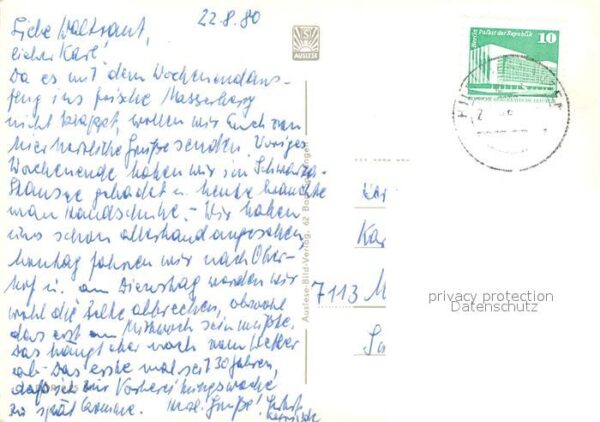 22.8.80
Liebe Waltraut,
lieber Karl!
Da es mit dem Wochenendaus-
flug ins frische Masserberg
nicht klappt, wollen wir Euch von
hier herzliche Grüße senden. Voriges
Wochenende haben wir im Schwarza-
Stausee gebadet u. heute brauchte
man Handschuhe. – Wir haben
uns schon allerhand angesehen
Montag fahren wir nach Ober-
hof u. am Dienstag werden wir
wohl die Zelte abbrechen, obwohl
das erst am Mittwoch sein müßte.
Das hängt aber noch vom Wetter
ab. Das erste mal seit 30 Jahren,
daß ich zur Vorbereitungswoche
zu spät komme. Grüße!
AUSLESE
Auslese-Bild-Verlag, 62 Bad
Berlin, Palast der Republik
10
7113 M
privacy protection
Datenschutz